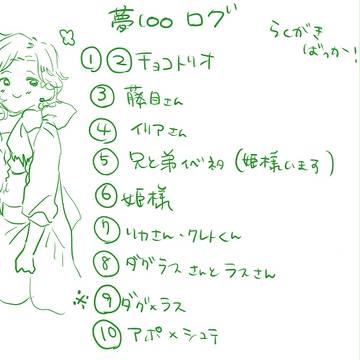 夢100 ログ
らくがき
ばっかー!
① ② チョコトリオ
③ 藤目さん
④ イリアさん
⑤ 兄と弟イベネタ (姫様います)
⑥ 姫様
⑦ リカさん・クレトくん
⑧ ダグラスさんとラスさん
※ ⑨ ダグ×ラス
⑩ アポ×シュテ